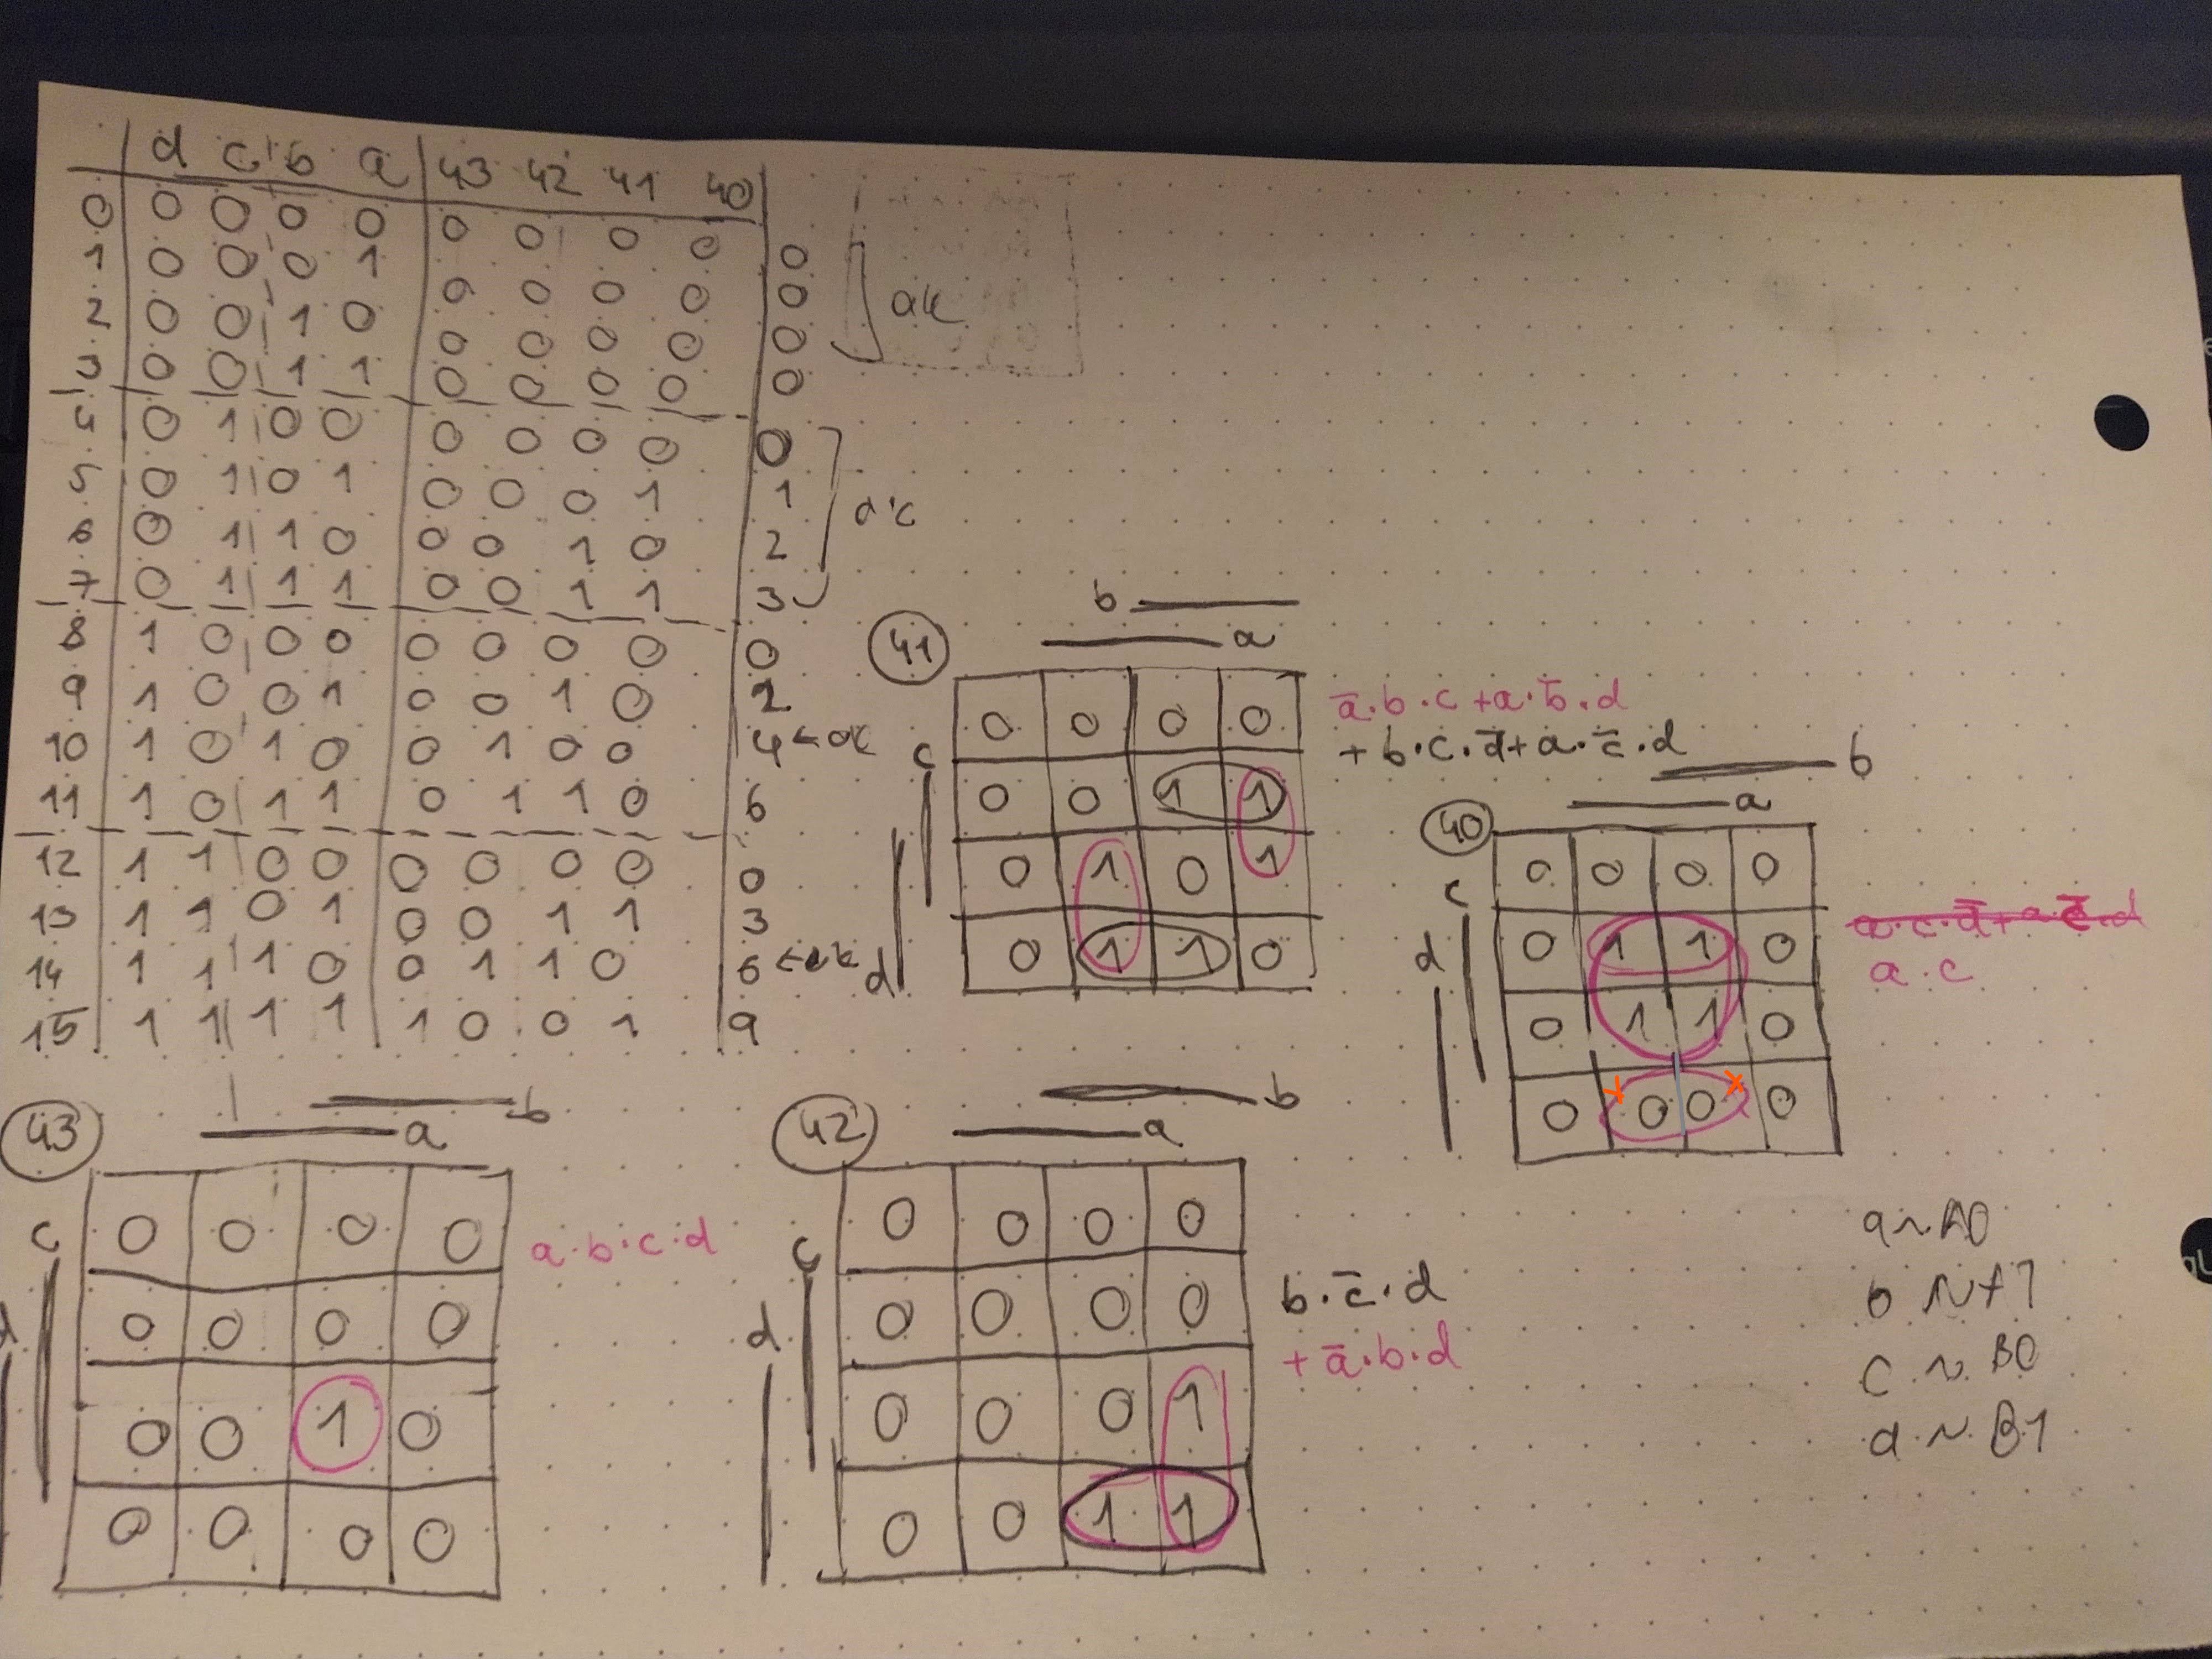 d c b a 43 42 41 40
0 0 0 0 0 0 0 0 0 0
1 0 0 0 1 0 0 0 0 0
2 0 0 1 0 0 0 0 0 0
3 0 0 1 1 0 0 0 0 0
ok
4 0 1 0 0 0 0 0 0 0
5 0 1 0 1 0 0 0 1 1
6 0 1 1 0 0 0 1 0 2
7 0 1 1 1 0 0 1 1 3
ok
8 1 0 0 0 0 0 0 0 0
9 1 0 0 1 0 0 1 0 2
10 1 0 1 0 0 1 0 0 4 ← ok
11 1 0 1 1 0 1 1 0 6
12 1 1 0 0 0 0 0 0 0
13 1 1 0 1 0 0 1 1 3
14 1 1 1 0 0 1 1 0 6 ← ok
15 1 1 1 1 1 0 0 1 9
41
b
a
c
d
0 0 0 0
0 0 1 1
0 1 0 1
0 1 1 0
a̅·b·c+a·b̅·d
+b·c·d̅+a·c̅·d
40
b
a
c
d
0 0 0 0
0 1 1 0
0 1 1 0
0 0 0 0
x x
a·c·d̅+a·c̅·d
a·c
43
b
a
c
d
0 0 0 0
0 0 0 0
0 0 1 0
0 0 0 0
a·b·c·d
42
b
a
c
d
0 0 0 0
0 0 0 0
0 0 0 1
0 0 1 1
b·c̅·d
+a̅·b·d
a ~ A0
b ~ A1
c ~ B0
d ~ B1